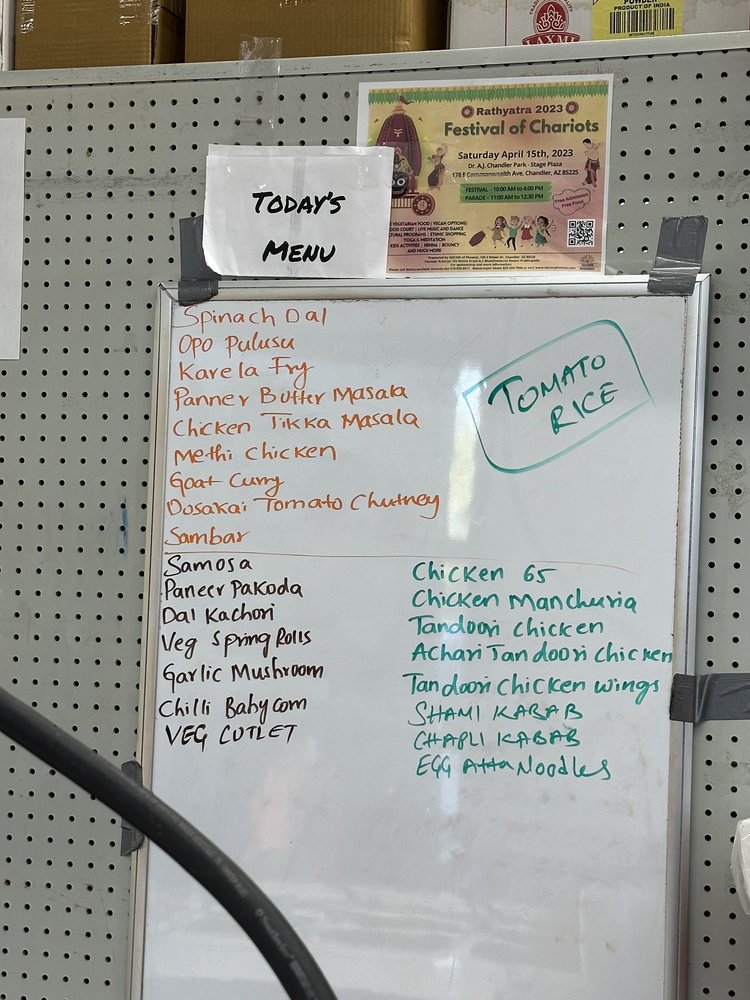 LAXMI
POWDER
PRODUCT OF INDIA
Rathyatra 2023
Festival of Chariots
Saturday April 15th, 2023
Dr. A.J. Chandler Park - Stage Plaza
178 E Commonwealth Ave, Chandler, AZ 85225
FESTIVAL - 10:00 AM to 4:00 PM
PARADE - 11:00 AM to 12:30 PM
Free Admission
Free Food
VEGETARIAN FOOD | VEGAN OPTIONS
FOOD COURT | LIVE MUSIC AND DANCE
CULTURAL PROGRAMS | ETHNIC SHOPPING
YOGA & MEDITATION
KIDS ACTIVITIES | HENNA | BOUNCY
AND MUCH MORE
TODAY'S
MENU
Spinach Dal
Opo Pulusu
Karela Fry
Panner Butter Masala
Chicken Tikka Masala
Methi Chicken
Goat Curry
Dosakai Tomato Chutney
Sambar
TOMATO
RICE
Samosa
Paneer Pakoda
Dal Kachori
Veg Spring Rolls
Garlic Mushroom
Chilli Baby corn
VEG CUTLET
Chicken 65
Chicken Manchuria
Tandoori chicken
Achari Tandoori chicken
Tandoori chicken wings
SHAMI KABAB
CHAPLI KABAB
EGG Atta Noodles